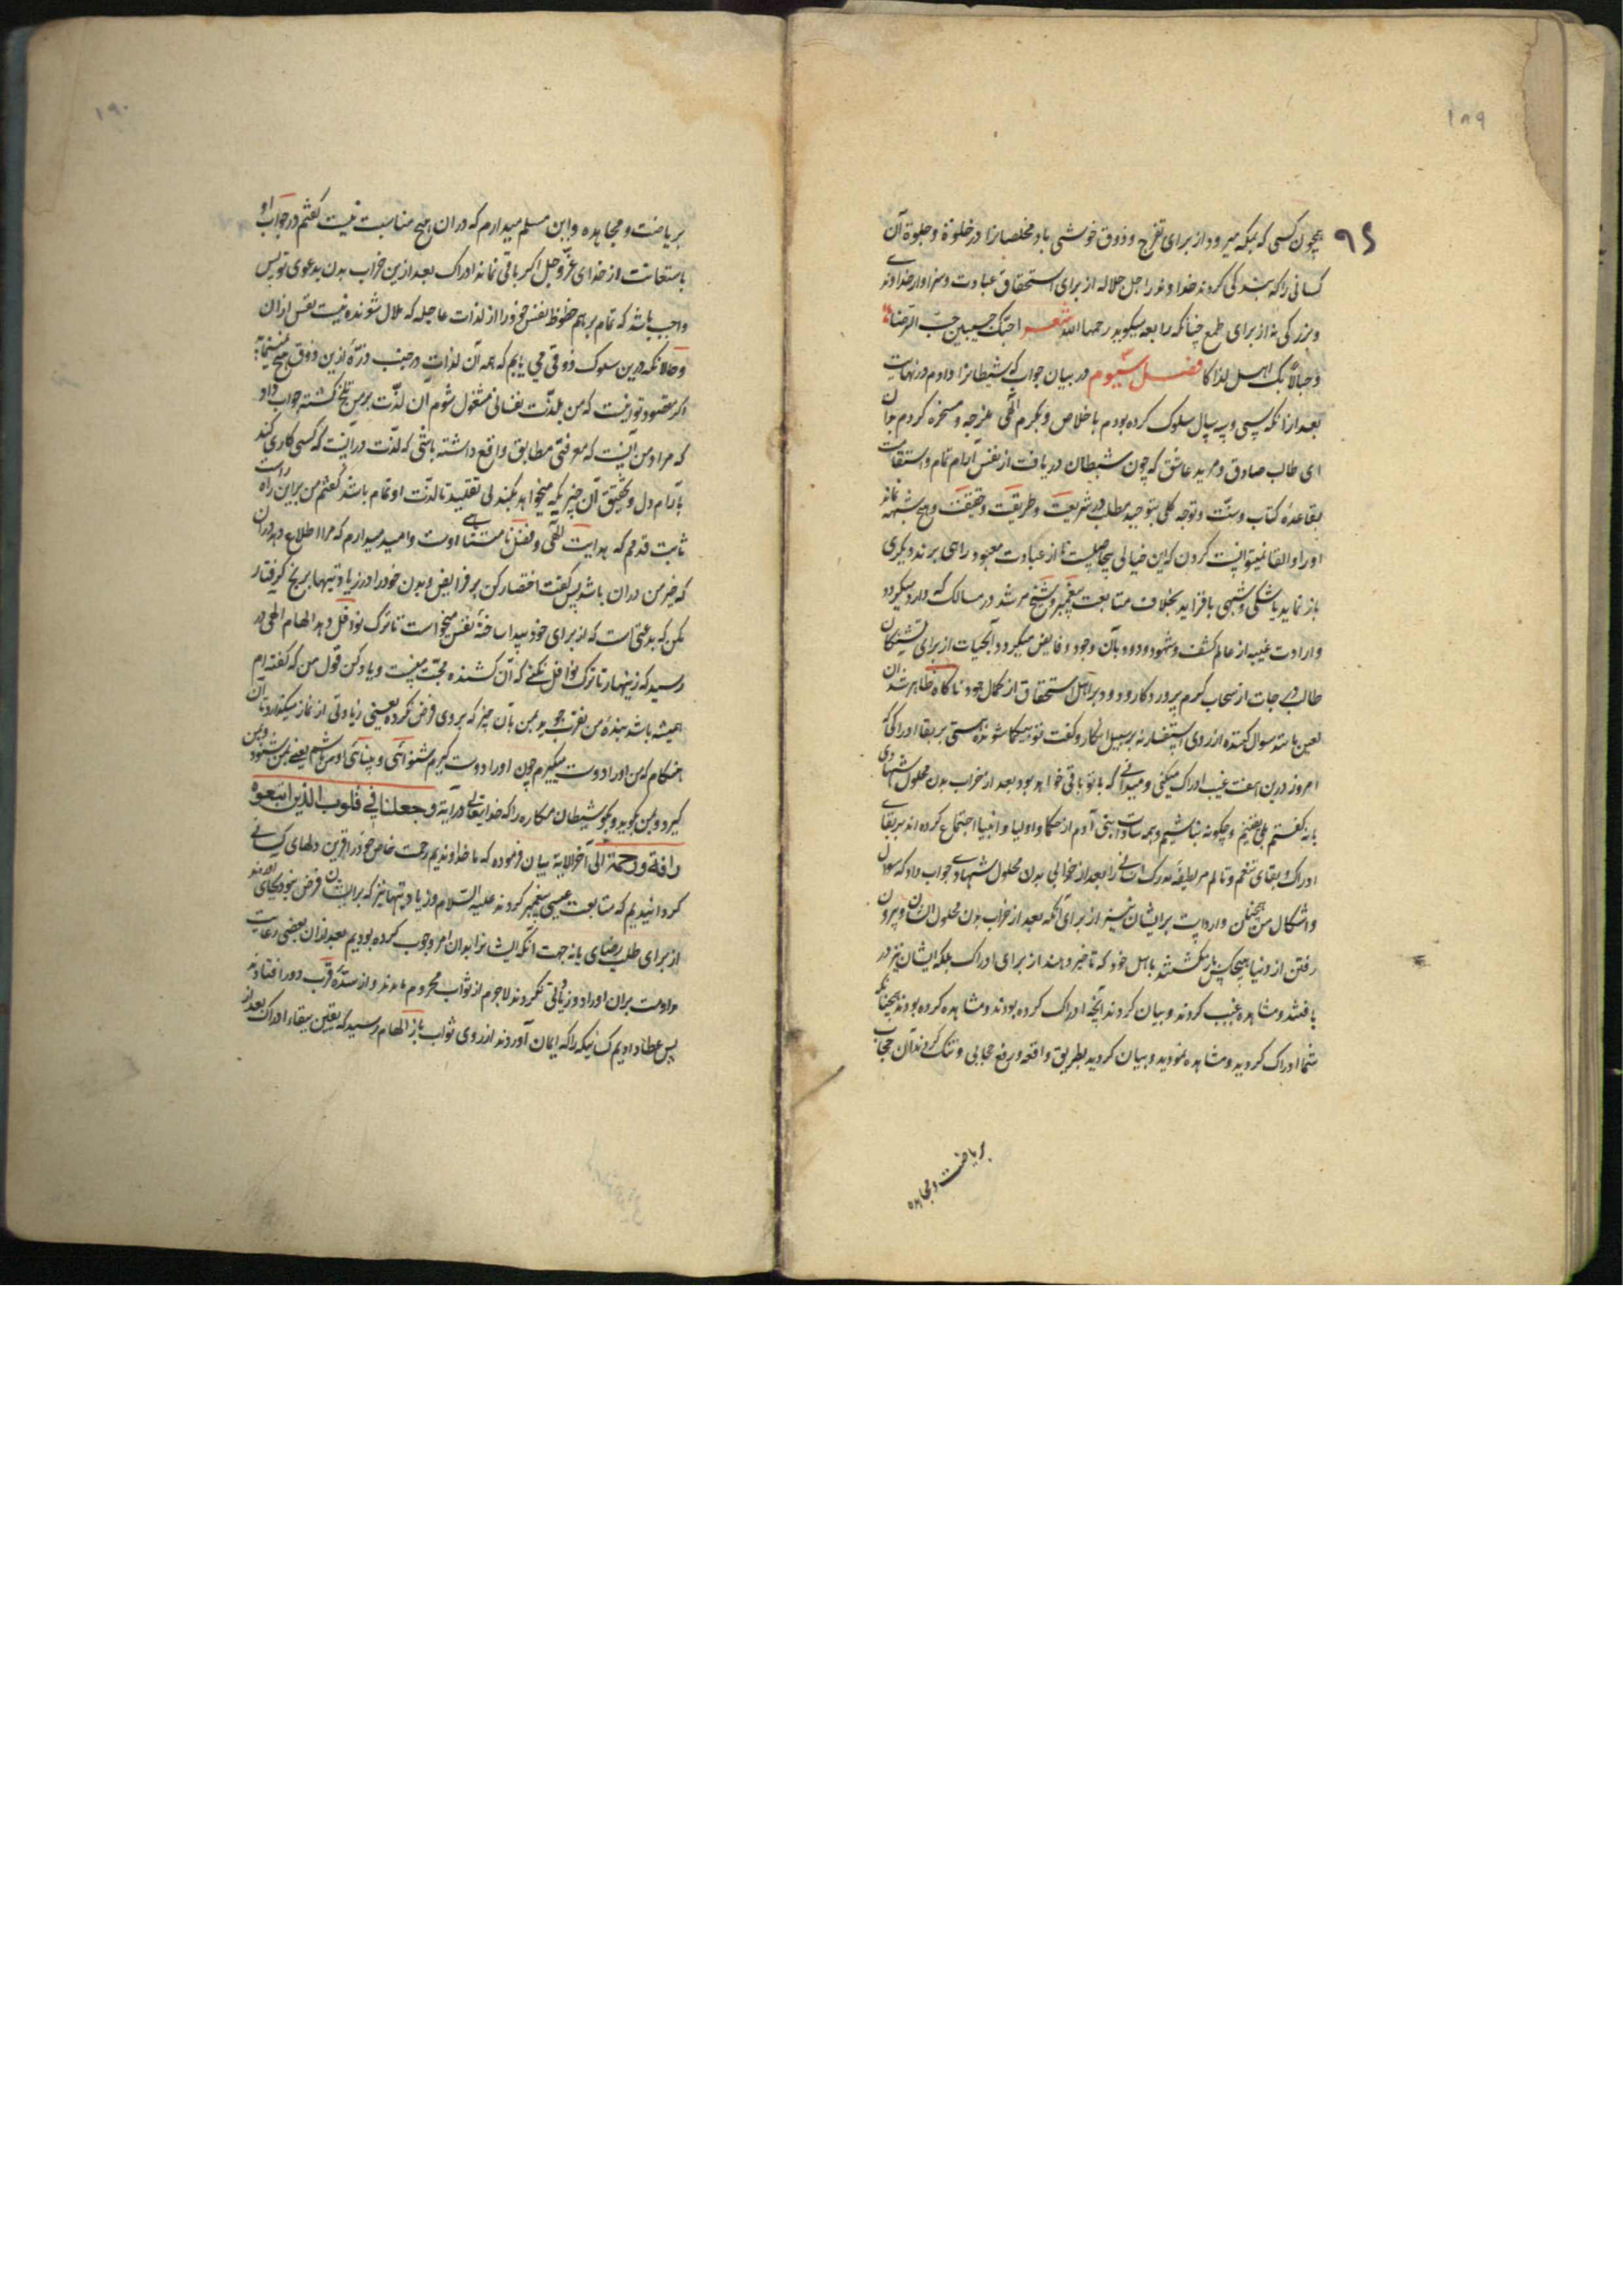 ۱۸۹
۹۵
همچون کسی که بمکه میرود از برای تفرج و ذوق خوشی باد مخلصانرا در خلوة و جلوة آن
کسانی را که بندگی کردند خداوند را جل جلاله از برای استحقاق عبادت و سزاوار خداوندی
و بزرگی نه از برای طمع چنانکه رابعه میکوید رحمها الله شعر احبک حبین حب الرضا
و حبا لانک اهل لذاکا فصل سیوم در بیان جواب که شیطانرا دادم در نهایت
بعد از انکه سی و سه سال سلوک کرده بودم باخلاص و بکرم الهی ملزجه و مسخره کردم بدان
ای طالب صادق و مرید عاشق که چون شیطان دریافت از نفس آرام تمام و استقامت
بقاعدهٔ کتاب و سنت و توجه کلی بتوحید مطلب در شریعت و طریقت و حقیقت و هیچ شبهه نماند
او را و القا نمیتوانست کردن که این خیالی بیحاصلیست تا از عبادت معبود راهی برند و یکری
باز نماید یا شکی و شبهی بافزاید بخلاف متابعت پیغمبر و شیخ مرشد در مسالک که دارد میکردد
و ارادت غیبیه از عالم کشف و شهود ودود بآن وجود و فایض میکردد آبحیات از برای تشنکان
طالب درجات از سحاب کرم پروردکار ودود بر اهل استحقاق از کمال جود ناکاه ظاهر شد آن
لعین باشد سوال کننده از روی استفسار نه بر سبیل انکار و کفت تو هیچکاه شونده هستی بر بقا ادراکی که
امروز درین صفت غیب ادراک میکنی و میدانی که با تو باقی خواهد بود بعد از خراب بدن محلول شهادی
یا نه کفتم بلی یقینم و چکونه نباشیم و همه سادات بنی آدم از حکما و اولیا و انبیا اجتماع کرده اند بر بقای
ادراک و بقای تنعم و تالم مر لطیفهٔ مدرک انسانی را بعد از خرابی بدن محلول شهادی جواب داد که سوال
و اشکال من همچنین واردایت بر ایشان نیز از برای آنکه بعد از خراب بدن محلول ایشان و بیرون
رفتن از دنیا هیچکس باز نکشتند باهل خود که تا خبر دهند از برای ادراک بلکه ایشان نیز در
یافتند و مشاهده غیب کردند و بیان کردند آنچه ادراک کرده بودند و مشاهده کرده بودند همچنانکه
شما ادراک کردید و مشاهده نمودید و بیان کردید بطریق واقعه و رفع حجابی و تنک کردند آن حجاب
بریاضت و مجاهده
۱۹۰
بریاضت و مجاهده و این مسلم میدارم که در ان هیچ مناسبت نیست کفتم در جواب او
باستعانت از خدای عز و جل اکر باقی نماند ادراک بعد ازین خراب بدن بدعوی تو پس
واجب باشد که تمام برهم حظوظ نفس خود را از لذات عاجله که ملال شونده نیست نفس از ان
و حالانکه درین سلوک ذوقی می یابم که همه آن لذات در جنب ذرهٔ ازین ذوق هیچ نمینماید
اکر مقصود تو اینست که من بلذت نفسانی مشغول شوم ان لذت بر من تلخ کشته جواب داد
که مراد من آنست که معرفتی مطابق واقع داشته باشی که لذت در آنست که کسی کاری کند
بآرام دل و بتحقیق آن چیزیکه میخواهد بکند بی تقلید تا لذت او تمام باشد کفتم من براین راه راست
ثابت قدمم که هدایت الهی و فضل نامتناهی اوست و امید میدارم که مرا اطلاع دهد در آن
که خیر من در ان باشد پس کفت اختصار کن بر فرایض و بدن خود را در زیادتیها برنج کرفتار
مکن که بدعتی است که از برای خود پیدا ساخته نفس میخواست تا ترک نوافل دهد الهام الهی در
رسید که زینهار تا ترک نوافل نکنی که آن کشنده محبت منست و یاد کن قول من که کفته ام
همیشه باشد بندهٔ من تقرب جوید بمن بآن چیز که بر وی فرض نکرده یعنی زیادتی از نماز میکذارد تا آن
هنکام که من او را دوست میکیرم چون او را دوست کیرم شنوائی و بینائی او من باشم یعنی بمن شنود و بمن
کیرد و بمن کوید و بکو شیطان مکاره را که خدایتعالی در آیة و جعلنا فی قلوب الذین اتبعوه
رافة و رحمة الی آخر الایة بیان فرموده که ما خداوندیم رحمت خاص خود را قرین دلهای کسانی
کردانیدیم که متابعت عیسی پیغمبر کردند علیه السلام و زیادتیها نیز که بر ایشان فرض نبود بجای آوردند
از برای طلب رضای ما نه جهت انکه ایشانرا بدان امر وجوب کرده بودیم بعد از ان بعضی رعایت
مداومت بر ان اوراد و زیادتی نکردند لاجرم از ثواب محروم ماندند و از سدهٔ قرب دور افتادند
پس عطا دادیم کسانیکه را که ایمان آوردند از روی ثواب باز الهام رسید که یقین ببقاء ادراک بعد از